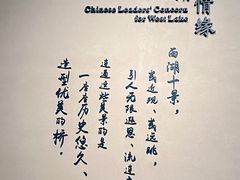 情缘
Chinese Leaders' Concern
for West Lake
西湖十景，
或近观、或远眺，
引人无限遐思、流连
连通这些美景的是
一座座历史悠久、
造型优美的桥。